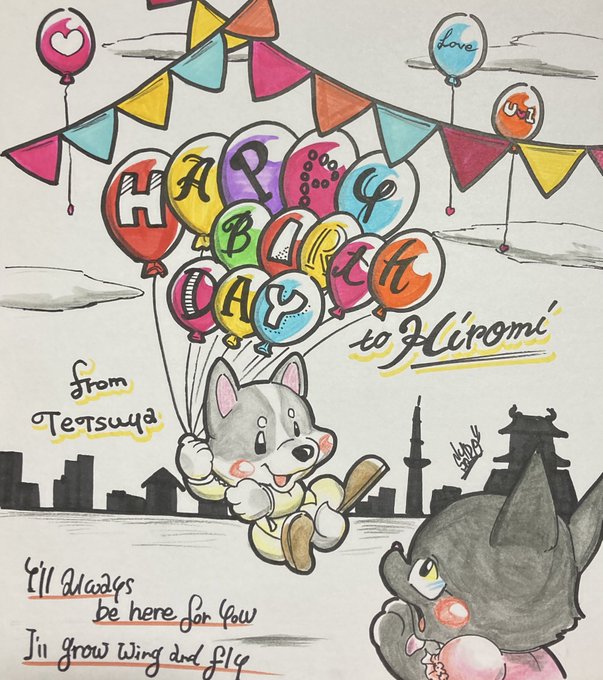 Love
HAPPY
BIRth
DAY
to Hiromi
from
Tetsuya
I'll always
be here for you
I'll grow wing and fly